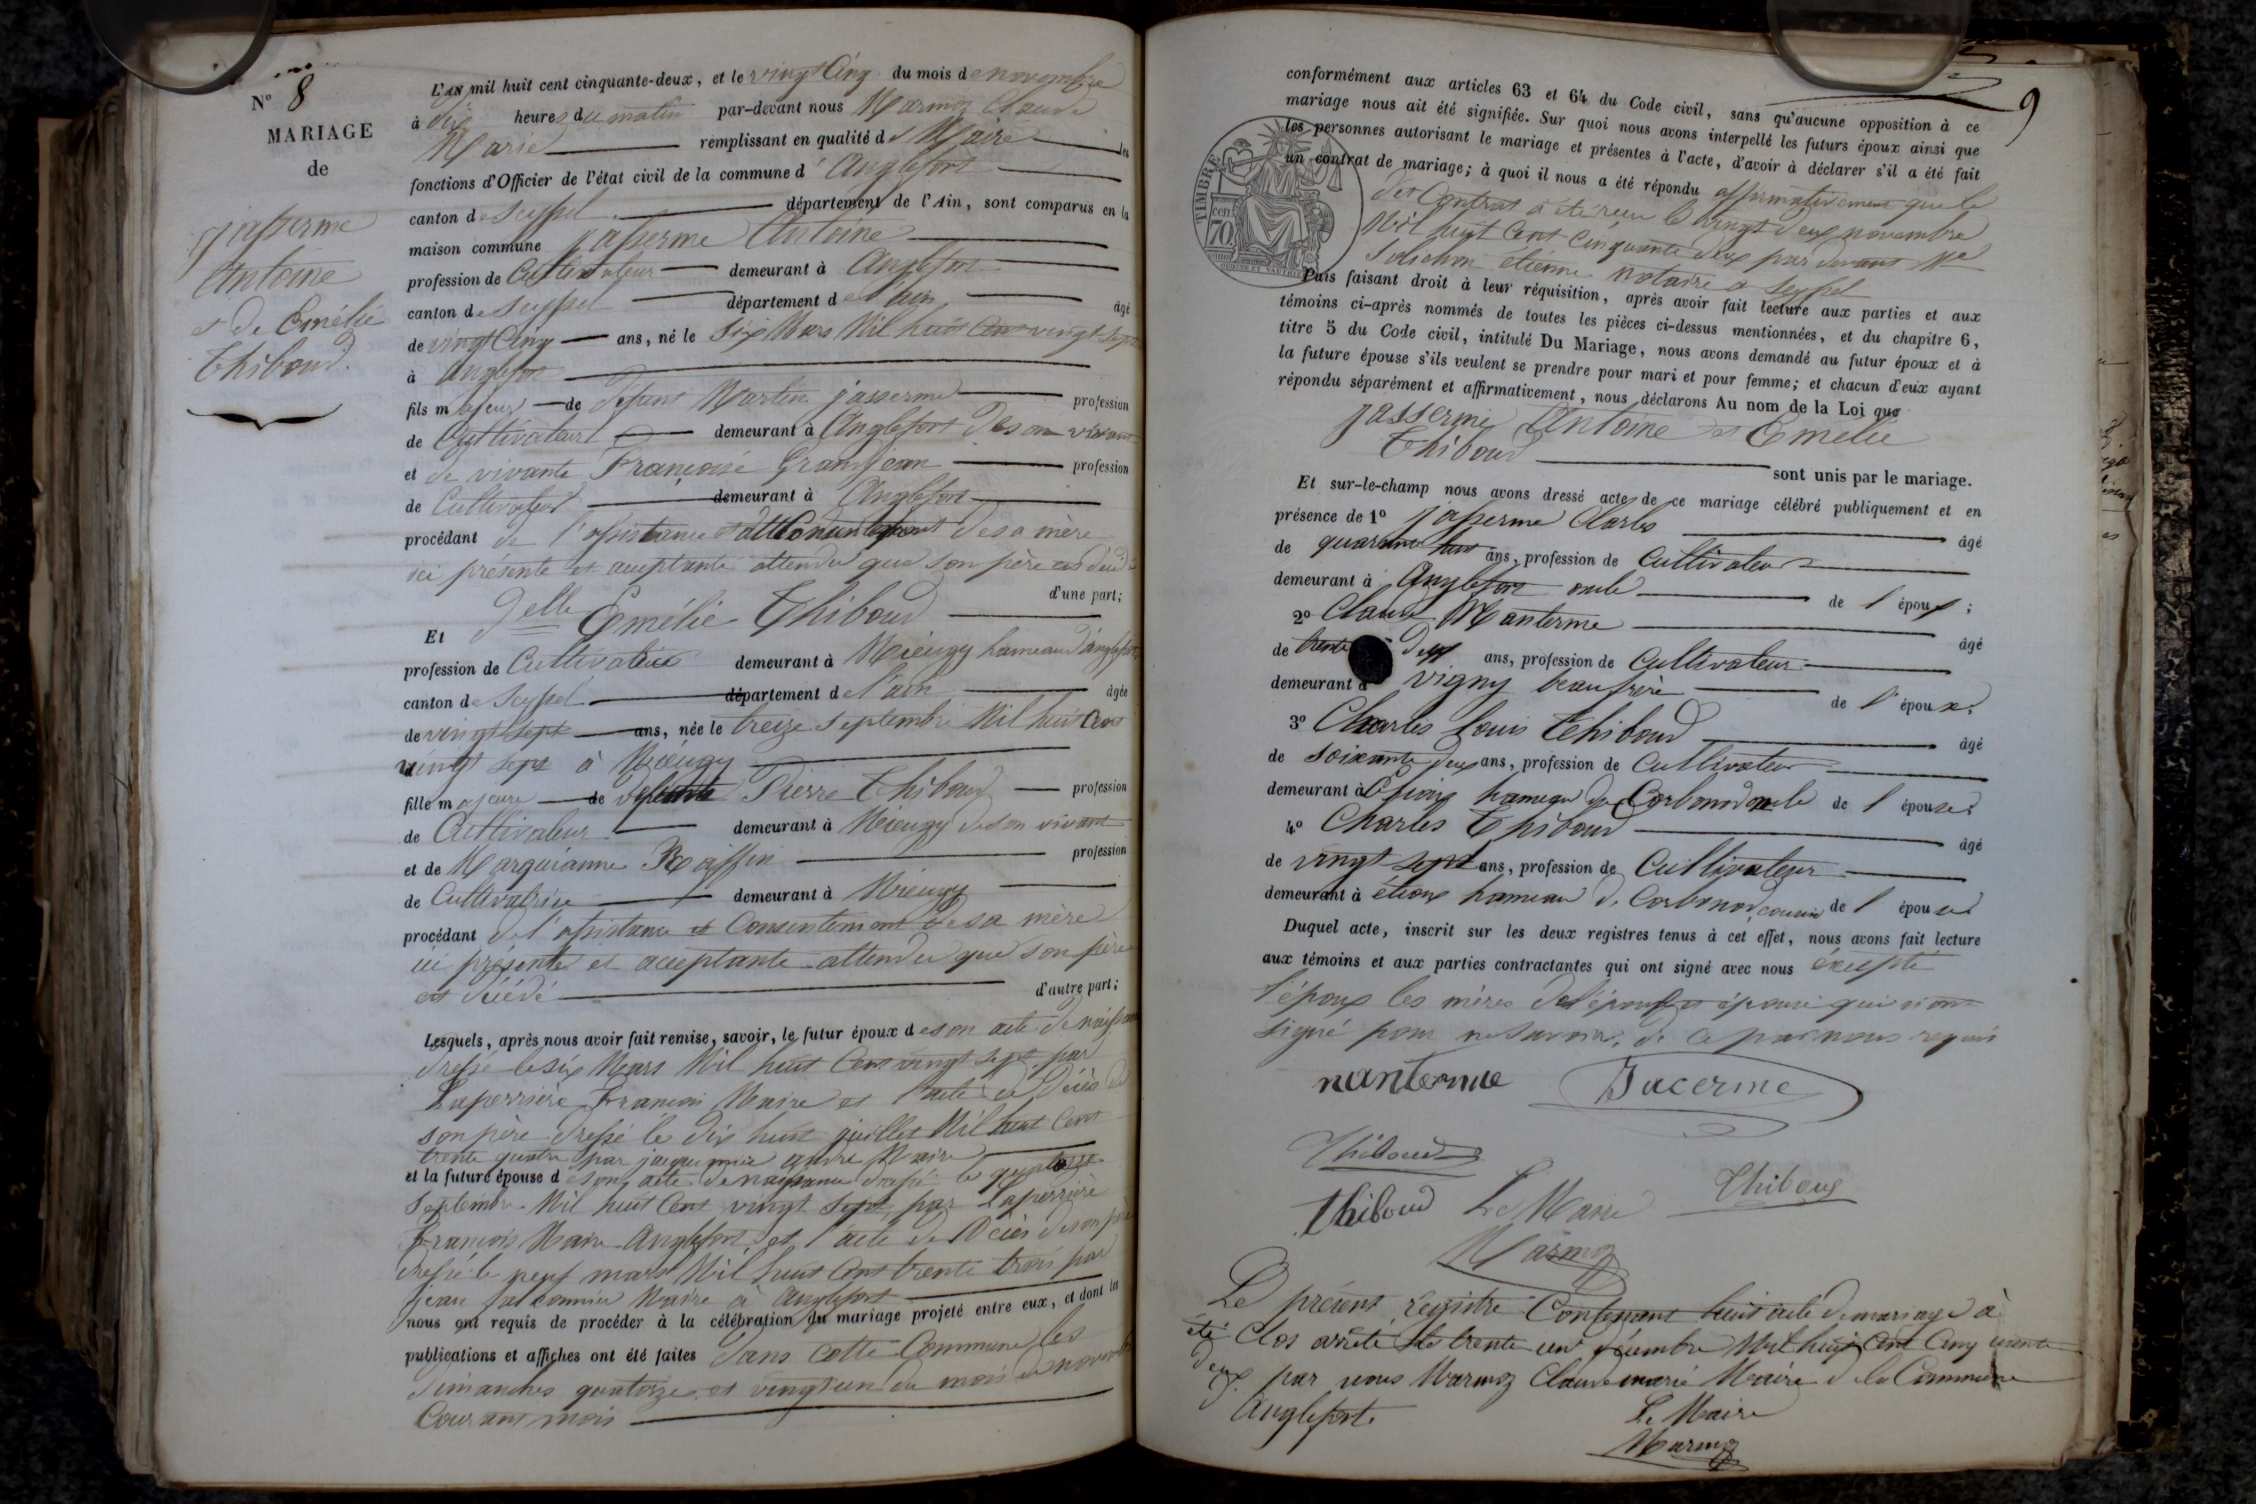 N° 8
MARIAGE
de
jasserme
Antoine
et de Emélie
Thiboud.
L'AN mil huit cent cinquante-deux, et le vingt Cinq du mois de novembre
à dix heures du matin par-devant nous Marmoz Claude
Marie remplissant en qualité de Maire les
fonctions d'Officier de l'état civil de la commune d'Anglefort
canton de Seyssel département de l'Ain, sont comparus en la
maison commune jasserme Antoine
profession de Cultivateur demeurant à Anglefort
canton de Seyssel département de l'ain âgé
de vingt Cinq ans, né le Six Mars Mil huit Cent vingt Sept
à Anglefort
fils majeur de défunt Martin jasserme profession
de Cultivateur demeurant à Anglefort de son vivant
et de vivante Françoise Grandjean profession
de Cultivateur demeurant à Anglefort
procédant de l'assistance et du Consentement de sa mère
ici présente et acceptante attendu que son père est décédé
d'une part;
Et Delle Emélie Thiboud
profession de Cultivatrice demeurant à Mieugy hameau d'anglefort
canton de Seyssel département de l'ain âgée
de vingt sept ans, née le treize septembre Mil huit Cent
vingt sept à Mieugy
fille majeure de Pierre Thiboud profession
de Cultivateur demeurant à Mieugy de son vivant
et de Marguianne Raffin profession
de Cultivatrice demeurant à Mieugy
procédant de l'assistance et Consentement de sa mère
ici présente et acceptante attendu que son père
est décédé d'autre part;
Lesquels, après nous avoir fait remise, savoir, le futur époux de son acte de naissance
dressé le six Mars Mil huit Cent vingt sept par
Laperrière François Maire et l'acte de Décès de
son père dressé le dix huit juillet Mil huit Cent
trente quatre par andré Maire
et la future épouse de son acte de naissance dressé le quatorze
septembre Mil huit Cent vingt sept par Laperrière
François Maire Anglefort et l'acte de Décès de son père
dressé le neuf mars Mil huit Cent trente trois par
jean falconnier Maire à Anglefort
nous ont requis de procéder à la célébration du mariage projeté entre eux, et dont les
publications et affiches ont été faites dans cette Commune les
dimanches quatorze et vingt un du mois de novembre
Courant mois
9
conformément aux articles 63 et 64 du Code civil, sans qu'aucune opposition à ce
mariage nous ait été signifiée. Sur quoi nous avons interpellé les futurs époux ainsi que
les personnes autorisant le mariage et présentes à l'acte, d'avoir à déclarer s'il a été fait
un contrat de mariage; à quoi il nous a été répondu affirmativement que le
TIMBRE
70 cent
dit Contrat a été reçu le vingt deux novembre
Mil huit Cent Cinquante deux par devant Me
étienne Notaire à Seyssel
Puis faisant droit à leur réquisition, après avoir fait lecture aux parties et aux
témoins ci-après nommés de toutes les pièces ci-dessus mentionnées, et du chapitre 6,
titre 5 du Code civil, intitulé Du Mariage, nous avons demandé au futur époux et à
la future épouse s'ils veulent se prendre pour mari et pour femme; et chacun d'eux ayant
répondu séparément et affirmativement, nous déclarons Au nom de la Loi que
jasserme Antoine et Emélie
Thiboud sont unis par le mariage.
Et sur-le-champ nous avons dressé acte de ce mariage célébré publiquement et en
présence de 1° jasserme Charles âgé
de quarante huit ans, profession de Cultivateur
demeurant à Anglefort oncle de l'époux;
2° Claude Nanterme âgé
de trente deux ans, profession de Cultivateur
demeurant à vigny beaufrère de l'époux;
3° Charles Louis Thiboud âgé
de soixante deux ans, profession de Cultivateur
demeurant à Etiove hameau de Corbonod oncle de l'épouse;
4° Charles Thiboud âgé
de vingt sept ans, profession de Cultivateur
demeurant à étiove hameau de Corbonod, cousin de l'épouse
Duquel acte, inscrit sur les deux registres tenus à cet effet, nous avons fait lecture
aux témoins et aux parties contractantes qui ont signé avec nous éxcepté
l'époux les mères de l'époux et épouse qui n'ont
signé pour ne savoir, de ce par nous requis
nanterme Jacerme
Thiboud
Thiboud Le Maire Thiboud
Marmoz
Le présent registre Contenant huit acte de mariage à
été Clos arrêté le trente un décembre Mil huit Cent Cinq uante
deux par nous Marmoz Claude marie Maire de la Commune
Anglefort.
Le Maire
Marmoz